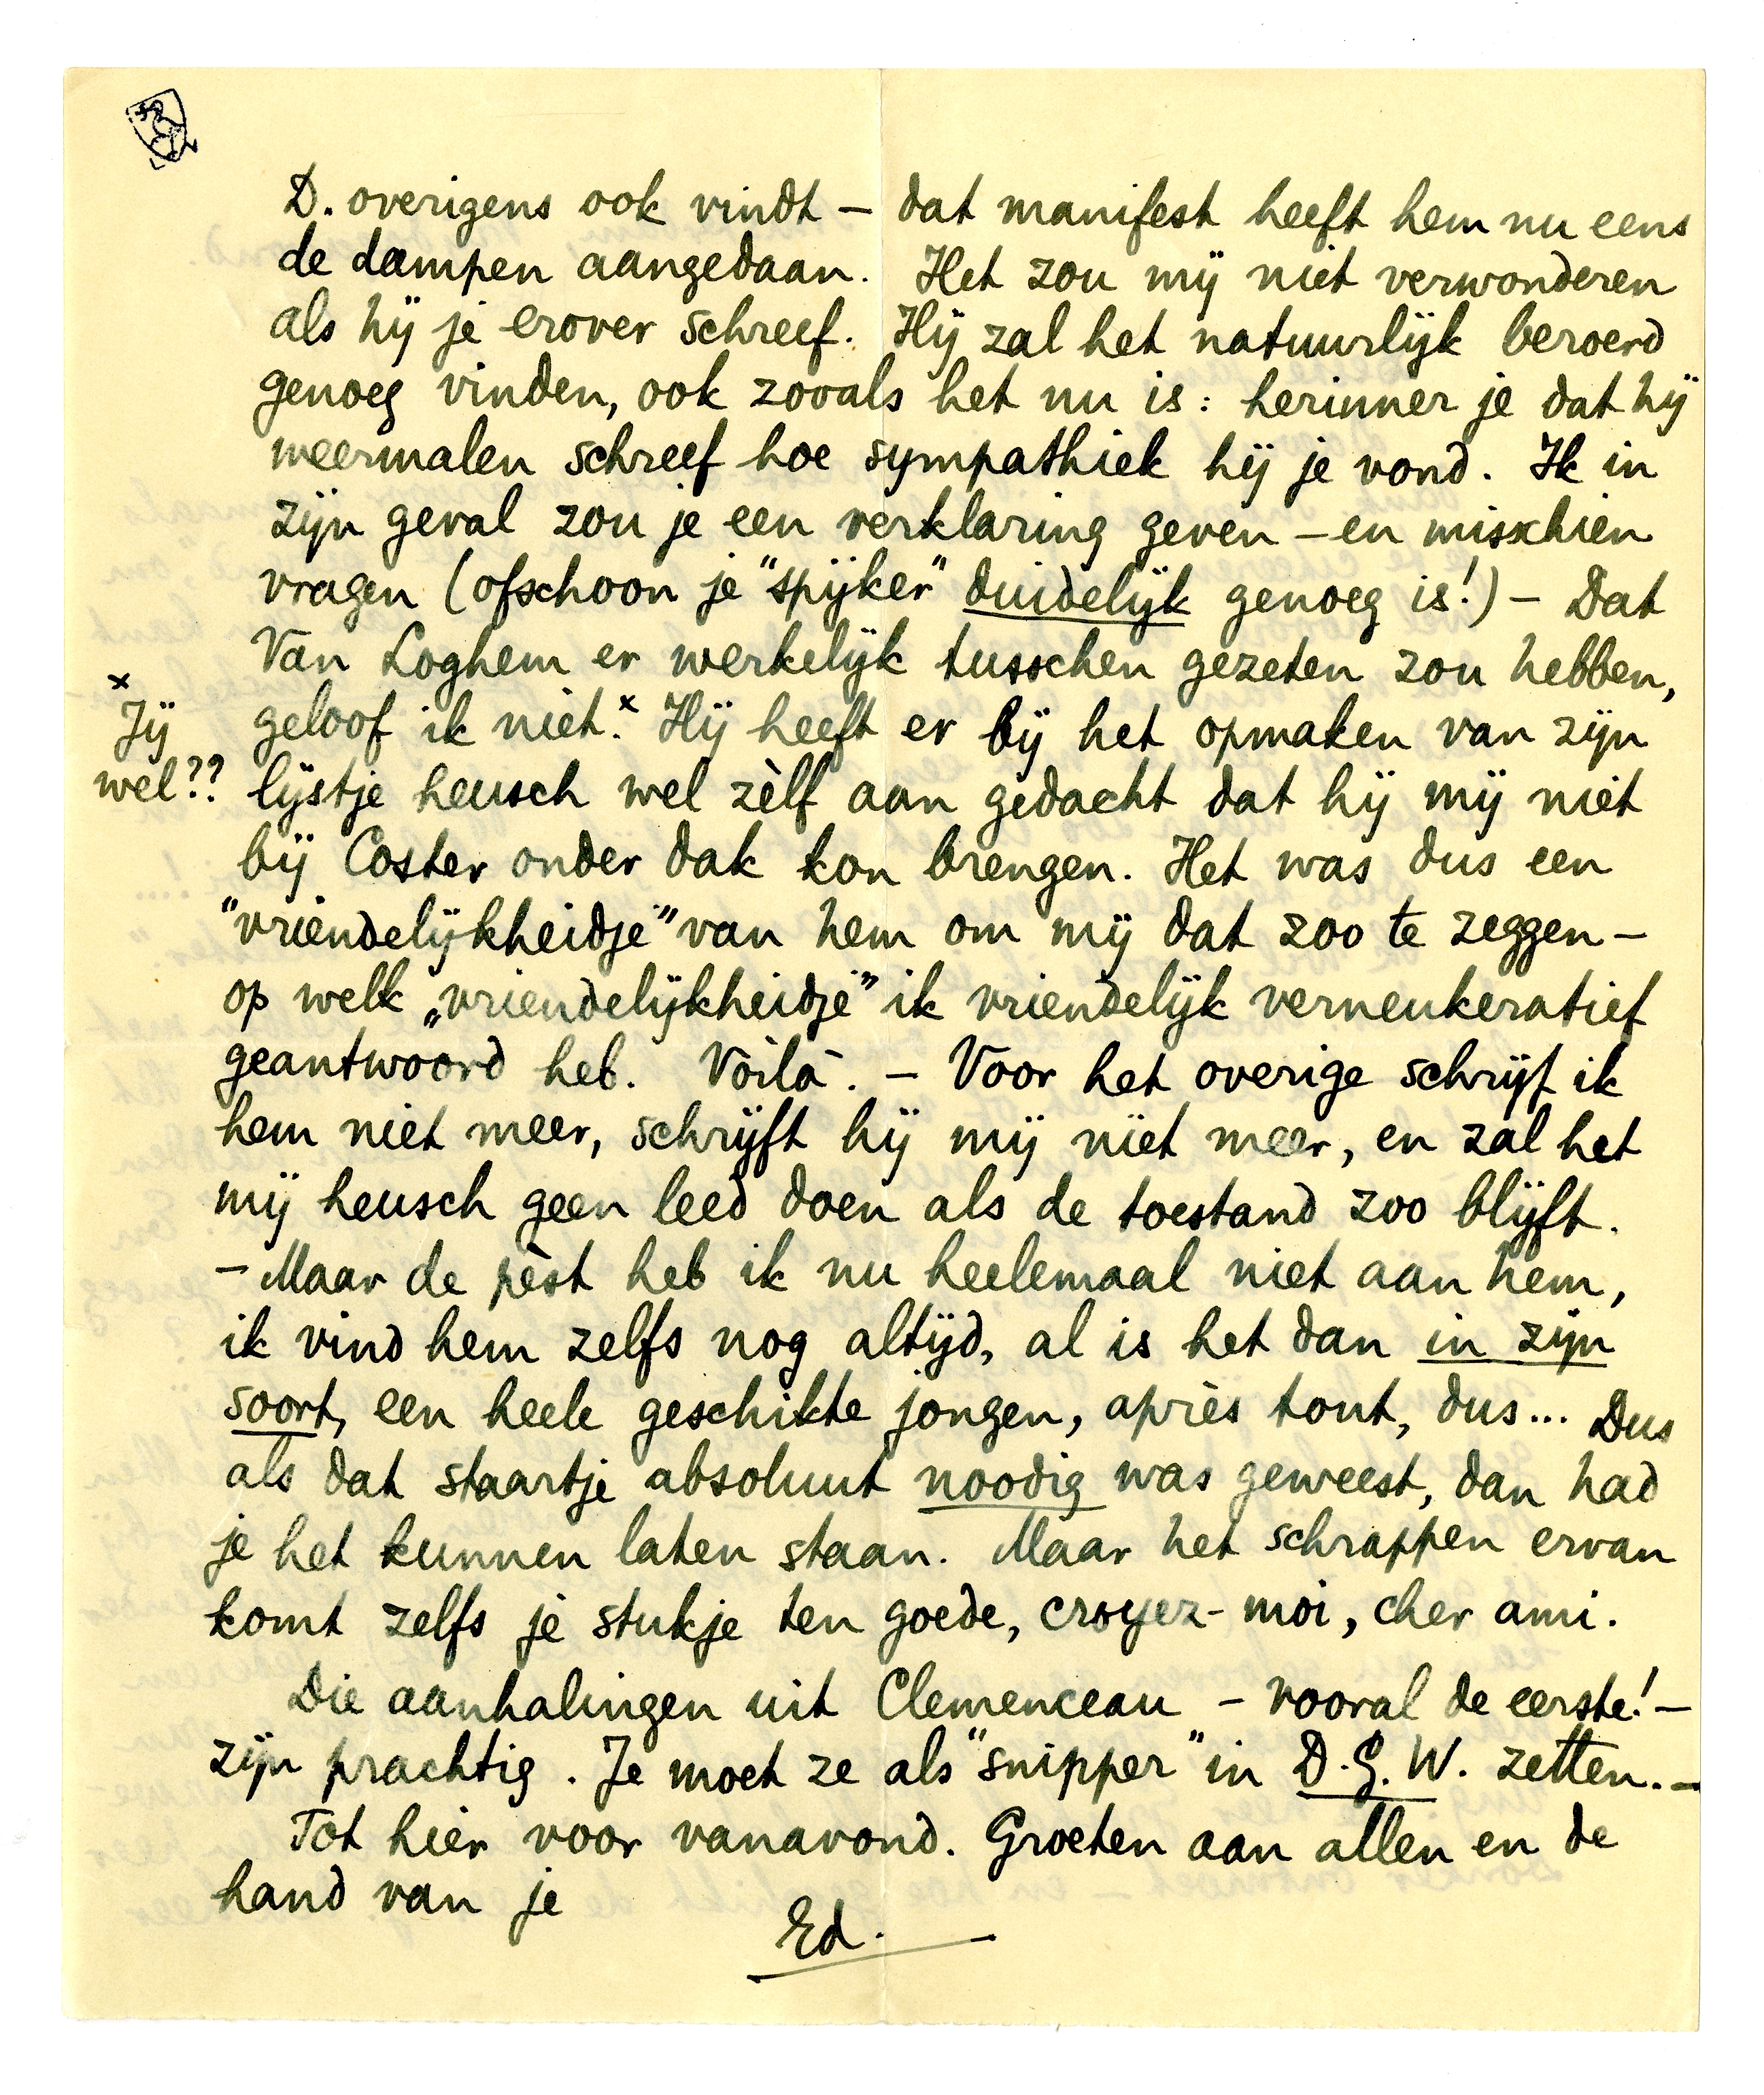 D. overigens ook vindt – dat manifest heeft hem nu eens
de dampen aangedaan. Het zou mij niet verwonderen
als hij je erover schreef. Hij zal het natuurlijk beroerd
genoeg vinden, ook zooals het nu is: herinner je dat hij
meermalen schreef hoe sympathiek hij je vond. Ik in
zijn geval zou je een verklaring geven – en misschien
vragen (ofschoon je "spijker" duidelijk genoeg is!) – Dat
Van Loghem er werkelijk tusschen gezeten zou hebben,
geloof ik niet.x Hij heeft er bij het opmaken van zijn
x
Jij
wel??
lijstje heusch wel zèlf aan gedacht dat hij mij niet
bij Coster onder dak kon brengen. Het was dus een
"vriendelijkheidje" van hem om mij dat zoo te zeggen –
op welk „vriendelijkheidje" ik vriendelijk verneukeratief
geantwoord heb. Voilà. – Voor het overige schrijf ik
hem niet meer, schrijft hij mij niet meer, en zal het
mij heusch geen leed doen als de toestand zoo blijft.
– Maar de pèst heb ik nu heelemaal niet aan hem,
ik vind hem zelfs nog altijd, al is het dan in zijn
soort, een heele geschikte jongen, après tout, dus... Dus
als dat staartje absoluut noodig was geweest, dan had
je het kunnen laten staan. Maar het schrappen ervan
komt zelfs je stukje ten goede, croyez-moi, cher ami.
Die aanhalingen uit Clemenceau – vooral de eerste! –
zijn prachtig. Je moet ze als "snipper" in D.G.W. zetten. –
Tot hier voor vanavond. Groeten aan allen en de
hand van je
Ed.